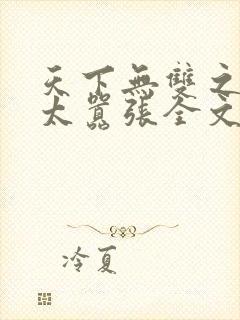 天下無雙之
太囂張全文
冷夏